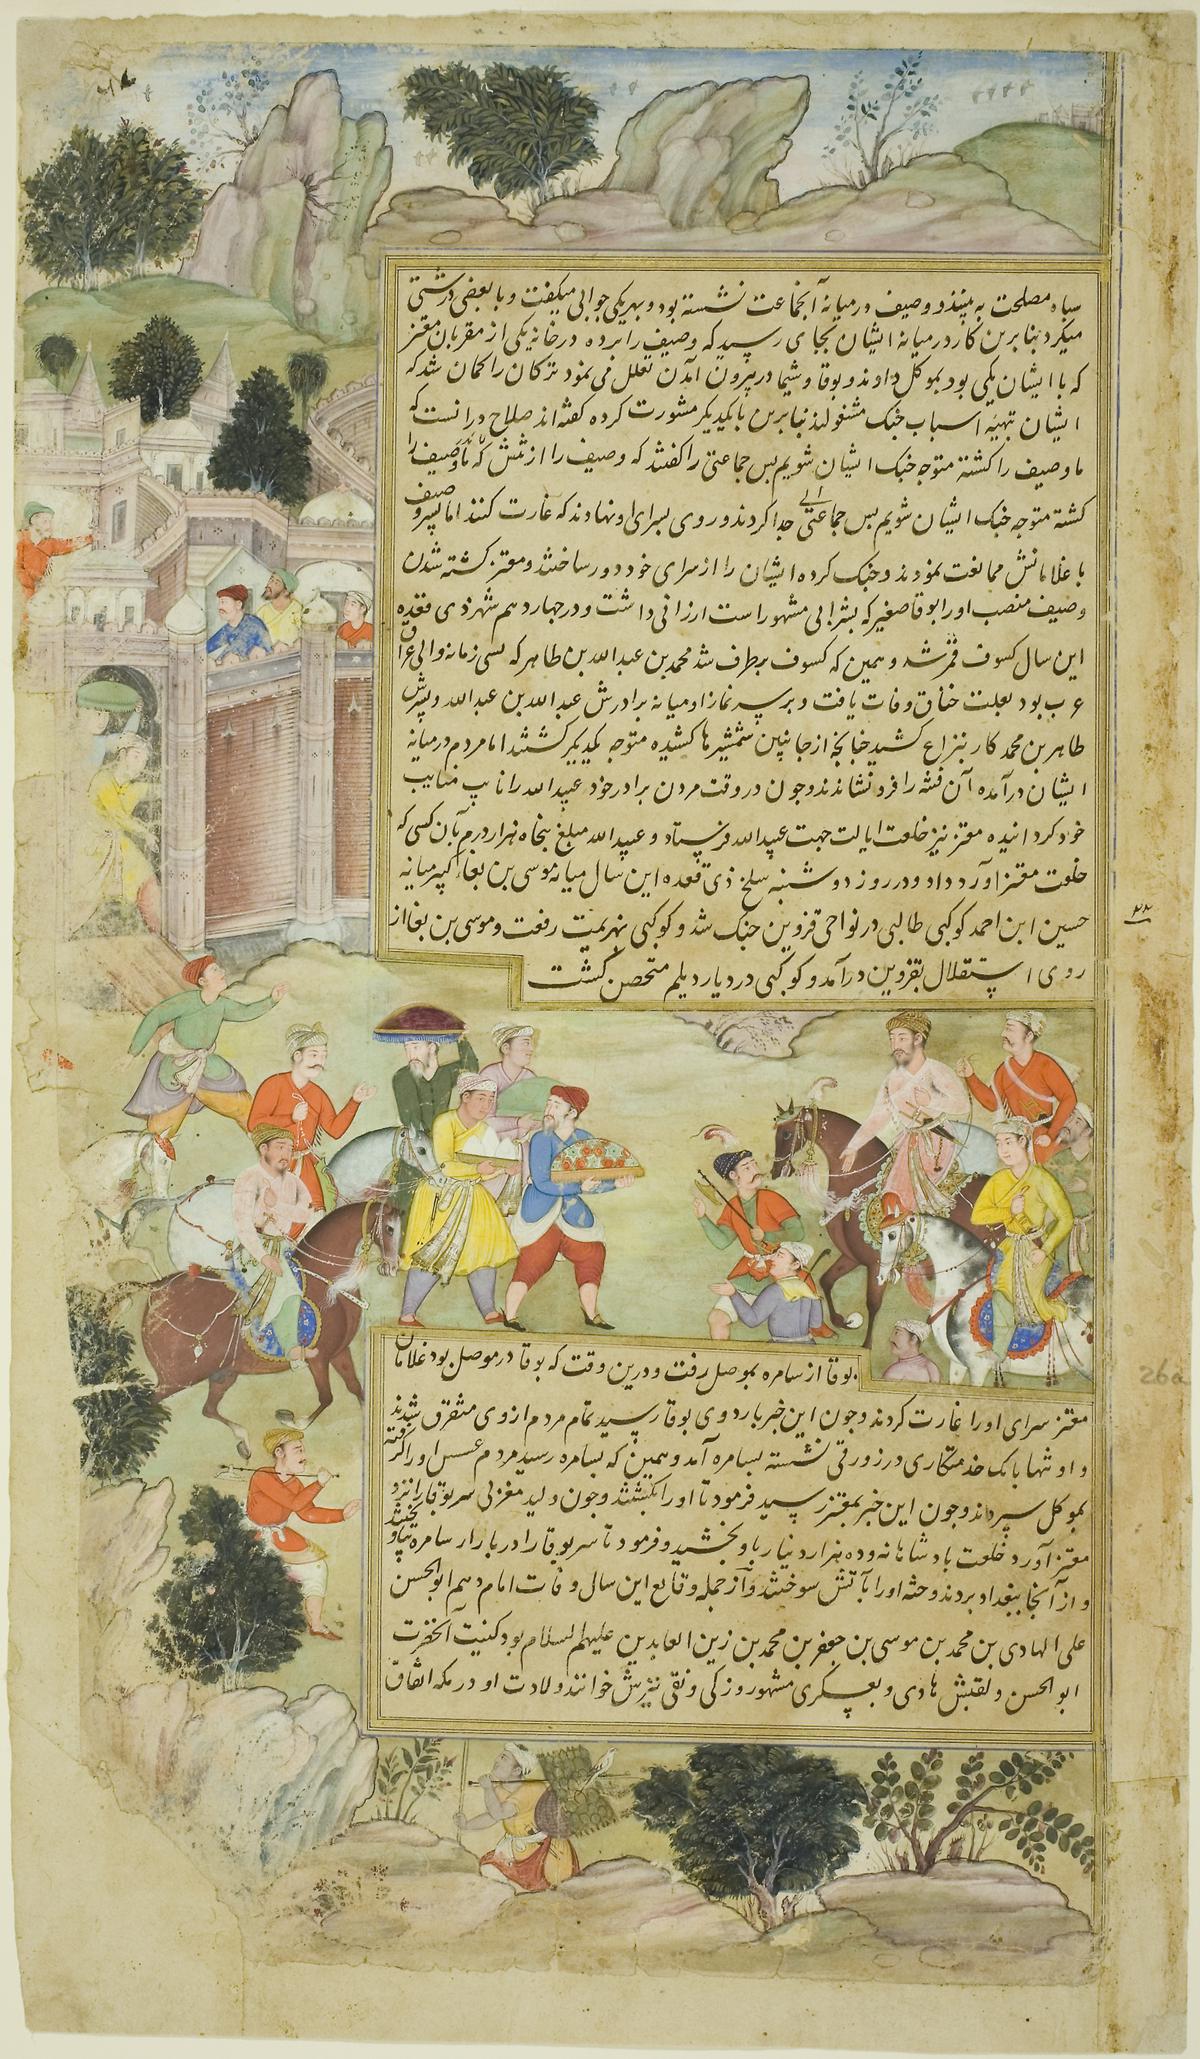 سپاه مصلحت به بینند و وصیف در میانهٔ آنجماعت نشسته بود و بهر یکی جوابی میکفت و با بعضی درشتی
میکرد بنا برین کار در میانه ایشان بجای رسید که وصیف را برده در خانه یکی از مقربان معتز
که با ایشان یکی بود بموکل دادند و بوقا و شیما در بیرون آمدن تعلل می نمود ترکان را کمان شد که
ایشان بتهیهٔ اسباب جنک مشغولند بنا برین با یکدیکر مشورت کرده کفتند صلاح در آنست که
ما وصیف را کشته متوجه جنک ایشان شویم پس جماعتی را کفتند که وصیف را از تمش که تا وصیف را
کشته متوجه جنک ایشان شویم پس جماعتی جدا کردند و روی بسرای او نهادند که غارت کنند اما پسر وصیف
با غلامانش ممانعت نمودند و جنک کرده ایشان را از سرای خود دور ساختند و معتز کشته شدن
وصیف منصب او را بوقا صغیر که بشرابی مشهور است ارزانی داشت و در چهاردهم شهر ذی قعده
این سال کسوف قمر شد و همین که کسوف برطرف شد محمد بن عبدالله بن طاهر که بسی زمانه والی عراق
عرب بود بعلت خناق وفات یافت و بر سر نماز او میانه برادرش عبدالله بن عبدالله و پسرش
طاهر بن محمد کار بنزاع کشید چنانچه از جانبین شمشیرها کشیده متوجه یکدیکر کشتند اما مردم در میانه
ایشان درآمده آن فتنه را فرو نشاندند و چون در وقت مردن برادر خود عبیدالله را نایب مناب
خود کردانیده معتز نیز خلعت ایالت جهت عبیدالله فرستاد و عبیدالله مبلغ پنجاه هزار درم بآن کسی که
خلعت معتز آورد داد و در روز دوشنبه سلخ ذی قعده این سال میانه موسی بن بغاء کبیر میانه
حسین ابن احمد کوکبی طالبی در نواحی قزوین جنک شد و کوکبی بهزیمت رفت و موسی بن بغا از
روی استقلال بقزوین درآمد و کوکبی در دیار دیلم متحصن کشت
۲۲
بوقا از سامره بموصل رفت و درین وقت که بوقا در موصل بود غلامان
معتز سرای او را غارت کردند و چون این خبر باردوی بوقا رسید تمام مردم از وی متفرق شدند
و او تنها با یک خدمتکاری در زورقی نشسته بسامره آمد و همین که بسامره رسید مردم عسس او را کرفته
بموکل سپردند و چون این خبر بمعتز رسید فرمود تا او را بکشتند و چون ولید مغربی سر بوقا را نزد
معتز آورد خلعت پادشاهانه و ده هزار دینار باو بخشید و فرمود تا سر بوقا را در بازار سامره بیاویختند
و از آنجا ببغداد بردند و جثه او را بآتش سوختند و از جمله وقایع این سال وفات امام دهم ابوالحسن
علی الهادی بن محمد بن موسی بن جعفر بن محمد بن زین العابدین علیهم السلام بود کنیت آنحضرت
ابوالحسن و لقبش هادی و بعسکری مشهور و زکی و نقی نیزش خوانند و ولادت او در مکه اتفاق
26a